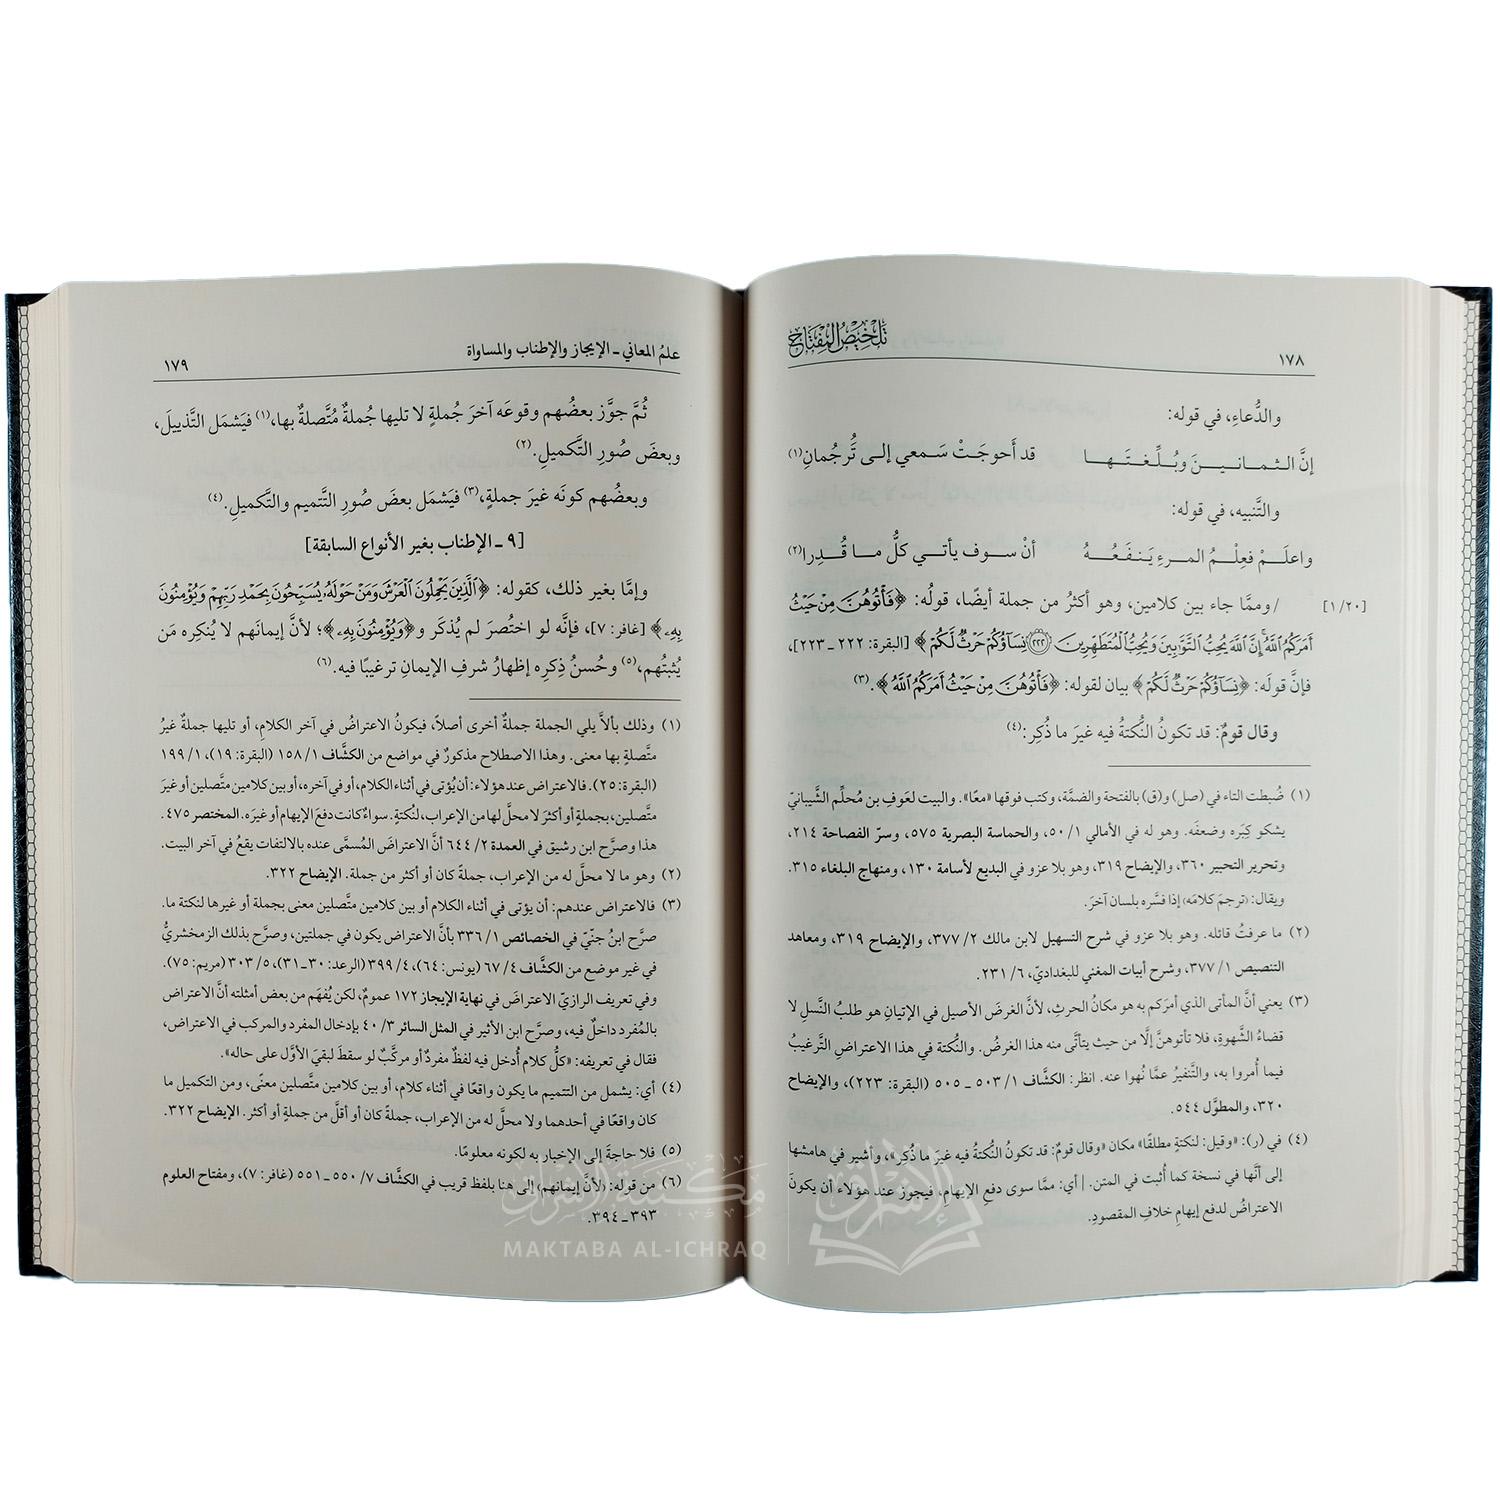 ١٧٨
تلخيص المفتاح
والدُّعاءِ، في قوله:
إنَّ الثمانينَ وبُلِّغتَها قد أَحوجَتْ سَمعي إلى تُرجُمانِ(١)
والتَّنبيه، في قوله:
واعلَمْ فعِلْمُ المرءِ يَنفَعُهُ أنْ سوف يأتي كلُّ ما قُدِرا(٢)
[١/٢٠] / وممَّا جاء بين كلامين، وهو أكثرُ من جملة أيضًا، قولُه: ﴿فَأْتُوهُنَّ مِنْ حَيْثُ
أَمَرَكُمُ اللَّهُ إِنَّ اللَّهَ يُحِبُّ التَّوَّابِينَ وَيُحِبُّ الْمُتَطَهِّرِينَ ٢٢٢ نِسَاؤُكُمْ حَرْثٌ لَّكُمْ﴾ [البقرة: ٢٢٢ ـ ٢٢٣]،
فإنَّ قولَه: ﴿نِسَاؤُكُمْ حَرْثٌ لَّكُمْ﴾ بيان لقوله: ﴿فَأْتُوهُنَّ مِنْ حَيْثُ أَمَرَكُمُ اللَّهُ﴾.(٣)
وقال قومٌ: قد تكونُ النُّكتةُ فيه غيرَ ما ذُكِر:(٤)
(١) ضُبطت التاء في (صل) و(ق) بالفتحة والضمَّة، وكتب فوقها «معًا». والبيت لعَوفِ بن مُحلِّم الشَّيبانيّ
يشكو كِبَره وضعفَه. وهو له في الأمالي ١/ ٥٠، والحماسة البصرية ٥٧٥، وسرّ الفصاحة ٢١٤،
وتحرير التحبير ٣٦٠، والإيضاح ٣١٩، وهو بلا عزو في البديع لأسامة ١٣٠، ومنهاج البلغاء ٣١٥.
ويقال: (ترجمَ كلامَه) إذا فسَّره بلسان آخرَ.
(٢) ما عرفتُ قائله. وهو بلا عزو في شرح التسهيل لابن مالك ٢/ ٣٧٧، والإيضاح ٣١٩، ومعاهد
التنصيص ١/ ٣٧٧، وشرح أبيات المغني للبغداديّ، ٦/ ٢٣١.
(٣) يعني أنَّ المأتى الذي أمرَكم به هو مكانُ الحرثِ، لأنَّ الغرضَ الأصيل في الإتيانِ هو طلبُ النَّسلِ لا
قضاءُ الشَّهوةِ، فلا تأتوهنَّ إلَّا من حيث يتأتَّى منه هذا الغرضُ. والنُّكتة في هذا الاعتراضِ التَّرغيبُ
فيما أُمروا به، والتَّنفيرُ عمَّا نُهوا عنه. انظر: الكشاف ١/ ٥٠٣ ـ ٥٠٥ (البقرة: ٢٢٣)، والإيضاح
٣٢٠، والمطوَّل ٥٤٤.
(٤) في (ر): «وقيل: لنكتةٍ مطلقًا» مكان «وقال قومٌ: قد تكونُ النُّكتةُ فيه غيرَ ما ذُكِر»، وأشير في هامشها
إلى أنَّها في نسخة كما أُثبت في المتن. | أي: ممَّا سوى دفعِ الإيهامِ، فيجوز عند هؤلاء أن يكونَ
الاعتراضُ لدفع إيهامِ خلافِ المقصودِ.
علمُ المعاني ـ الإيجاز والإطناب والمساواة
١٧٩
ثُمَّ جوَّز بعضُهم وقوعَه آخرَ جُملةٍ لا تليها جُملةٌ مُتَّصلةٌ بها،(١) فيَشمَل التَّذييلَ،
وبعضَ صُورِ التَّكميلِ.(٢)
وبعضُهم كونَه غيرَ جملةٍ،(٣) فيَشمَل بعضَ صُورِ التَّتميم والتَّكميلِ.(٤)
[٩ ـ الإطناب بغير الأنواع السابقة]
وإمَّا بغير ذلك، كقوله: ﴿الَّذِينَ يَحْمِلُونَ الْعَرْشَ وَمَنْ حَوْلَهُ يُسَبِّحُونَ بِحَمْدِ رَبِّهِمْ وَيُؤْمِنُونَ
بِهِ﴾ [غافر: ٧]، فإنَّه لو اختُصرَ لم يُذكَر و﴿وَيُؤْمِنُونَ بِهِ﴾؛ لأنَّ إيمانَهم لا يُنكِره مَن
يُثبتُهم،(٥) وحُسنُ ذِكرِه إظهارُ شرفِ الإيمانِ ترغيبًا فيه.(٦)
(١) وذلك بألاَّ يلي الجملة جملةٌ أخرى أصلًا، فيكونُ الاعتراضُ في آخر الكلامِ، أو تليها جملةٌ غيرُ
متَّصلةٍ بها معنى. وهذا الاصطلاح مذكورٌ في مواضع من الكشَّاف ١/ ١٥٨ (البقرة: ١٩)، ١/ ١٩٩
(البقرة: ٢٥). فالاعتراض عند هؤلاء: أن يُؤتى في أثناء الكلام، أو في آخره، أو بين كلامين متَّصلين أو غيرَ
متَّصلين، بجملةٍ أو أكثرَ لا محلَّ لها من الإعراب، لنُكتةٍ. سواءٌ كانت دفعَ الإيهام أو غيرَه. المختصر ٤٧٥.
هذا وصرَّح ابن رشيق في العمدة ٢/ ٦٤٤ أنَّ الاعتراضَ المُسمَّى عنده بالالتفات يقعُ في آخر البيت.
(٢) وهو ما لا محلَّ له من الإعراب، جملةً كان أو أكثر من جملة. الإيضاح ٣٢٢.
(٣) فالاعتراض عندهم: أن يؤتى في أثناء الكلام أو بين كلامين متَّصلين معنى بجملة أو غيرها لنكتة ما.
صرَّح ابنُ جنّيّ في الخصائص ١/ ٣٣٦ بأنَّ الاعتراض يكون في جملتين، وصرَّح بذلك الزمخشريُّ
في غير موضع من الكشَّاف ٤/ ٦٧ (يونس: ٦٤)، ٤/ ٣٩٩ (الرعد: ٣٠ـ٣١)، ٥/ ٣٠٣ (مريم: ٧٥).
وفي تعريف الرازيّ الاعتراضَ في نهاية الإيجاز ١٧٢ عمومٌ، لكن يُفهَم من بعض أمثلته أنَّ الاعتراض
بالمُفرد داخلٌ فيه، وصرَّح ابن الأثير في المثل السائر ٣/ ٤٠ بإدخال المفرد والمركب في الاعتراض،
فقال في تعريفه: «كلُّ كلام أُدخل فيه لفظٌ مفردٌ أو مركَّبٌ لو سقطَ لبقيَ الأوَّل على حاله».
(٤) أي: يشمل من التتميم ما يكون واقعًا في أثناء كلام، أو بين كلامين متَّصلين معنًى، ومن التكميل ما
كان واقعًا في أحدهما ولا محلَّ له من الإعراب، جملةً كان أو أقلَّ من جملةٍ أو أكثر. الإيضاح ٣٢٢.
(٥) فلا حاجةَ إلى الإخبارِ به لكونه معلومًا.
(٦) من قوله: (لأنَّ إيمانهم) إلى هنا بلفظ قريب في الكشَّاف ٧/ ٥٥٠ ـ ٥٥١ (غافر: ٧)، ومفتاح العلوم
٣٩٣ ـ ٣٩٤.
مكتبة الإشراق
MAKTABA AL-ICHRAQ
الإشراق